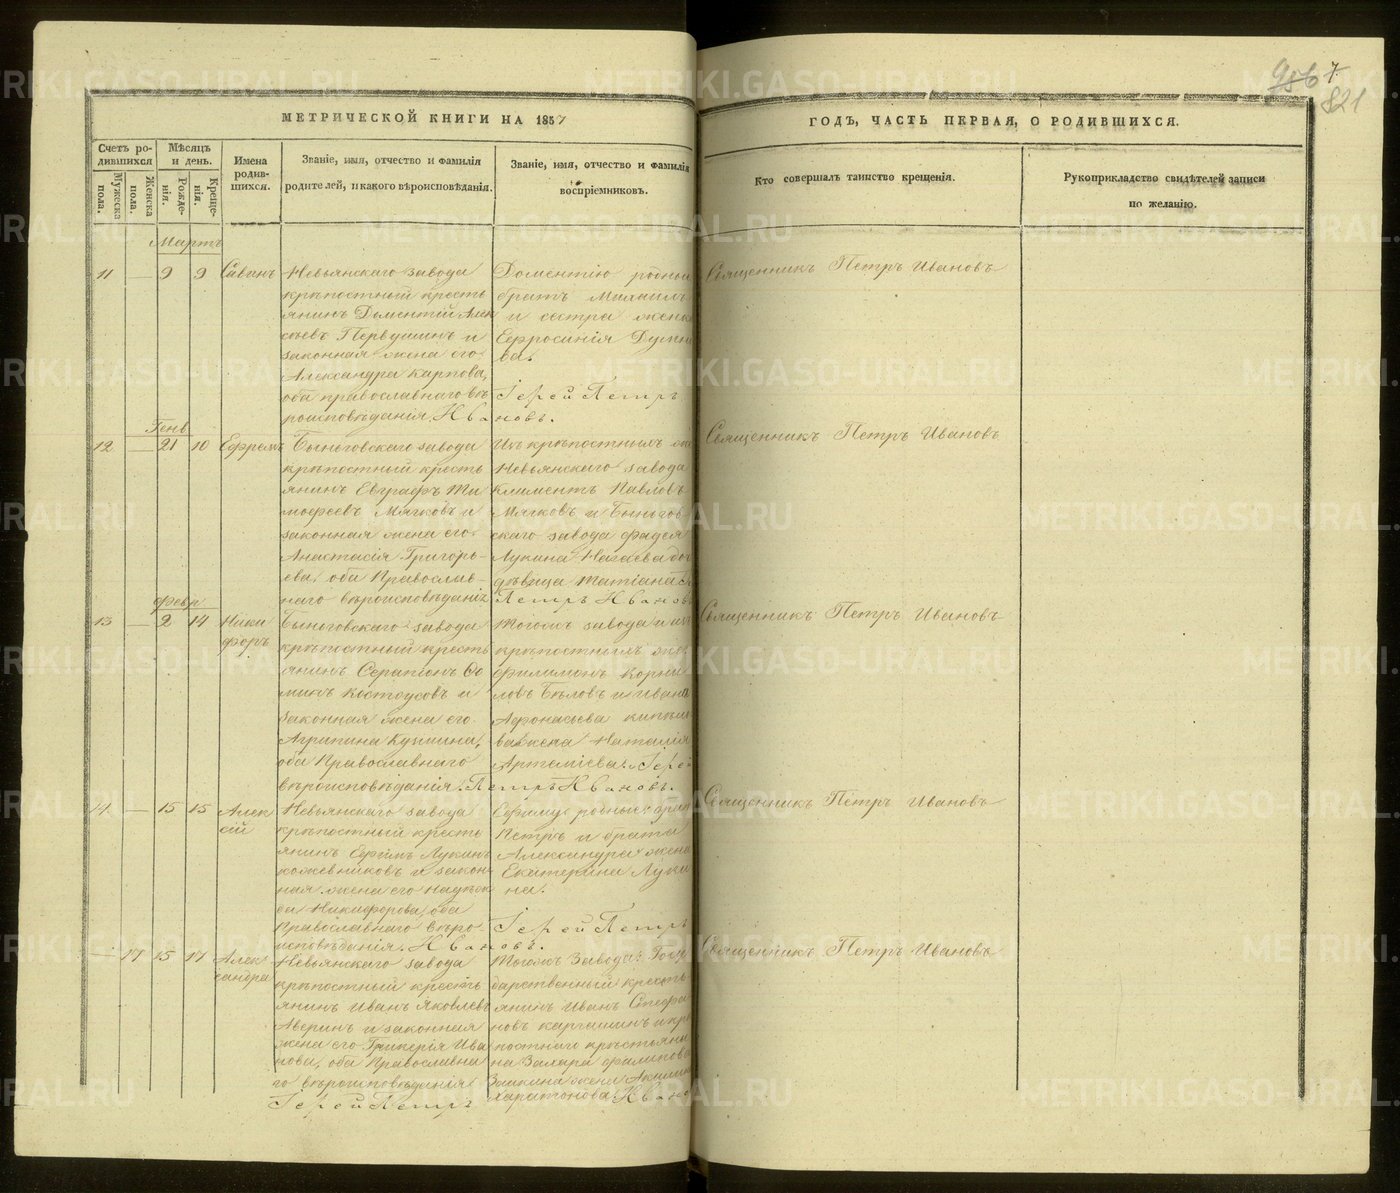 956 7
821
МЕТРИЧЕСКОЙ КНИГИ НА 1857
ГОДЪ, ЧАСТЬ ПЕРВАЯ, О РОДИВШИХСЯ.
Счетъ ро-
дившихся
Мужеска
пола.
Женска
пола.
Мѣсяцъ
и день.
Рожде-
нія.
Креще-
нія.
Имена
родив-
шихся.
Званіе, имя, отчество и фамилія
родителей, и какого вѣроисповѣданія.
Званіе, имя, отчество и фамилія
воспріемниковъ.
Кто совершалъ таинство крещенія.
Рукоприкладство свидѣтелей записи
по желанію.
Мартъ
11 — 9 9
Невьянскаго завода
крѣпостный кресть
янинъ Доментий Алек
сѣевъ Первушинъ и
законная жена его
Александра Карпова,
оба православнаго вѣ
роисповѣданія.
Доментію родный
братъ Михаилъ
и сестра жена
Евфросинія
Іерей Петръ
Ивановъ.
Священникъ Петръ Ивановъ
Генв
12 — 21 10 Ефремъ
Быньговскаго завода
крѣпостный кресть
янинъ Евграфъ Ти
мофеевъ Мягковъ и
законная жена его
Анастасія Григорь-
ева, оба Православ-
наго вѣроисповѣданія
Невьянскаго завода
Климентъ Павловъ
Мягковъ и Быньгов
скаго завода Фадея
Лукина
дѣвица Татіана
Петръ Ивановъ
Священникъ Петръ Ивановъ
Февр
13 — 2 14 Ники
форъ
Быньговскаго завода
крѣпостный кресть
янинъ Серапіонъ Ѳо
минъ Костоусовъ и
законная жена его
Агрипина Кузмина,
оба Православнаго
вѣроисповѣданія.
Тогожъ завода
Филимонъ Корни
ловъ Бѣловъ и Ивана
Афонасьева
жена Наталія
Артеміева. Іерей
Петръ Ивановъ.
Священникъ Петръ Ивановъ
14 — 15 15 Алек
сій
Невьянскаго завода
крѣпостный кресть
янинъ Ефимъ Лукинъ
кожевниковъ и закон
ная жена его
Никифорова, оба
Православнаго вѣро-
исповѣданія.
Ефиму родные:
Петръ и брата
Александра жена
Екатерина Луки
на.
Іерей Петръ
Ивановъ.
Священникъ Петръ Ивановъ
— 17 15 17 Алек
сандра
Невьянскаго завода
крѣпостный кресть
янинъ Иванъ Яковлевъ
Аверинъ и законная
жена его Гликерія Ива
нова, оба Православна
го вѣроисповѣданія
Тогожъ Завода: Госу
дарственный кресть
янинъ Иванъ Стефа
новъ
постнаго крестьяни
на Захара Филипова
жена Акилина
Харитонова.
Іерей Петръ Ивано
Священникъ Петръ Ивановъ
METRIKI.GASO-URAL.RU